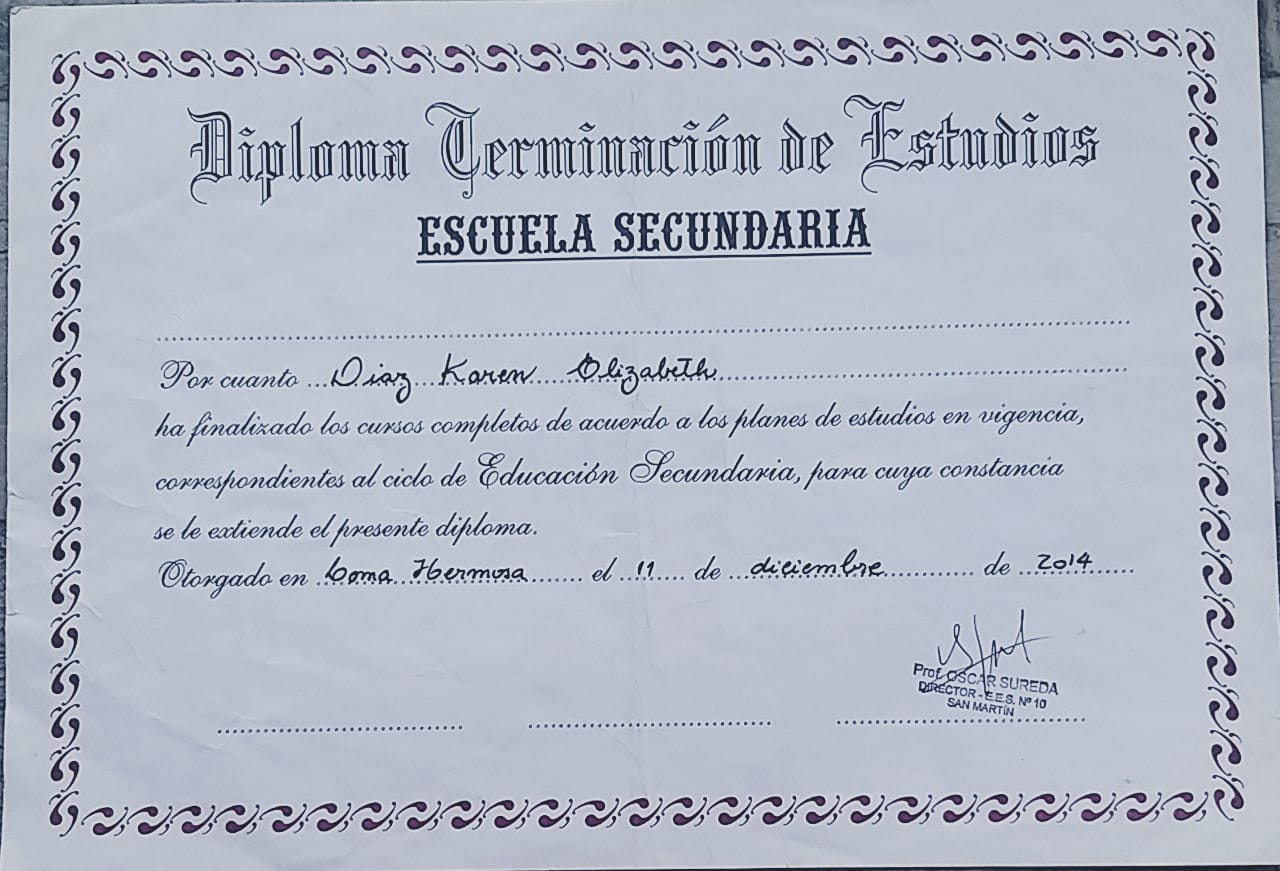 Diploma Terminación de Estudios
ESCUELA SECUNDARIA
Por cuanto Diaz Karen Elizabeth
ha finalizado los cursos completos de acuerdo a los planes de estudios en vigencia,
correspondientes al ciclo de Educación Secundaria, para cuya constancia
se le extiende el presente diploma.
Otorgado en Loma Hermosa el 11 de diciembre de 2014
Prof. OSCAR SUREDA
DIRECTOR - E.E.S. Nº 10
SAN MARTÍN